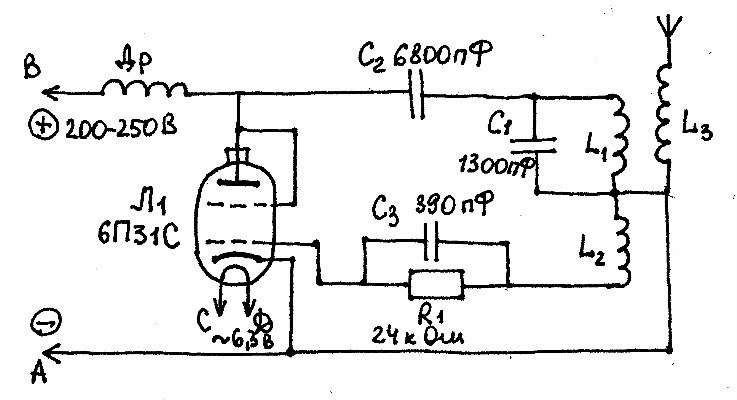 В
Др
⊕ 200-250В
C2 6800пФ
C1
1300пФ
L1
L3
Л1
6П31С
C3 390пФ
L2
R1
24 к Ом
С
~6,3В
⊖
А